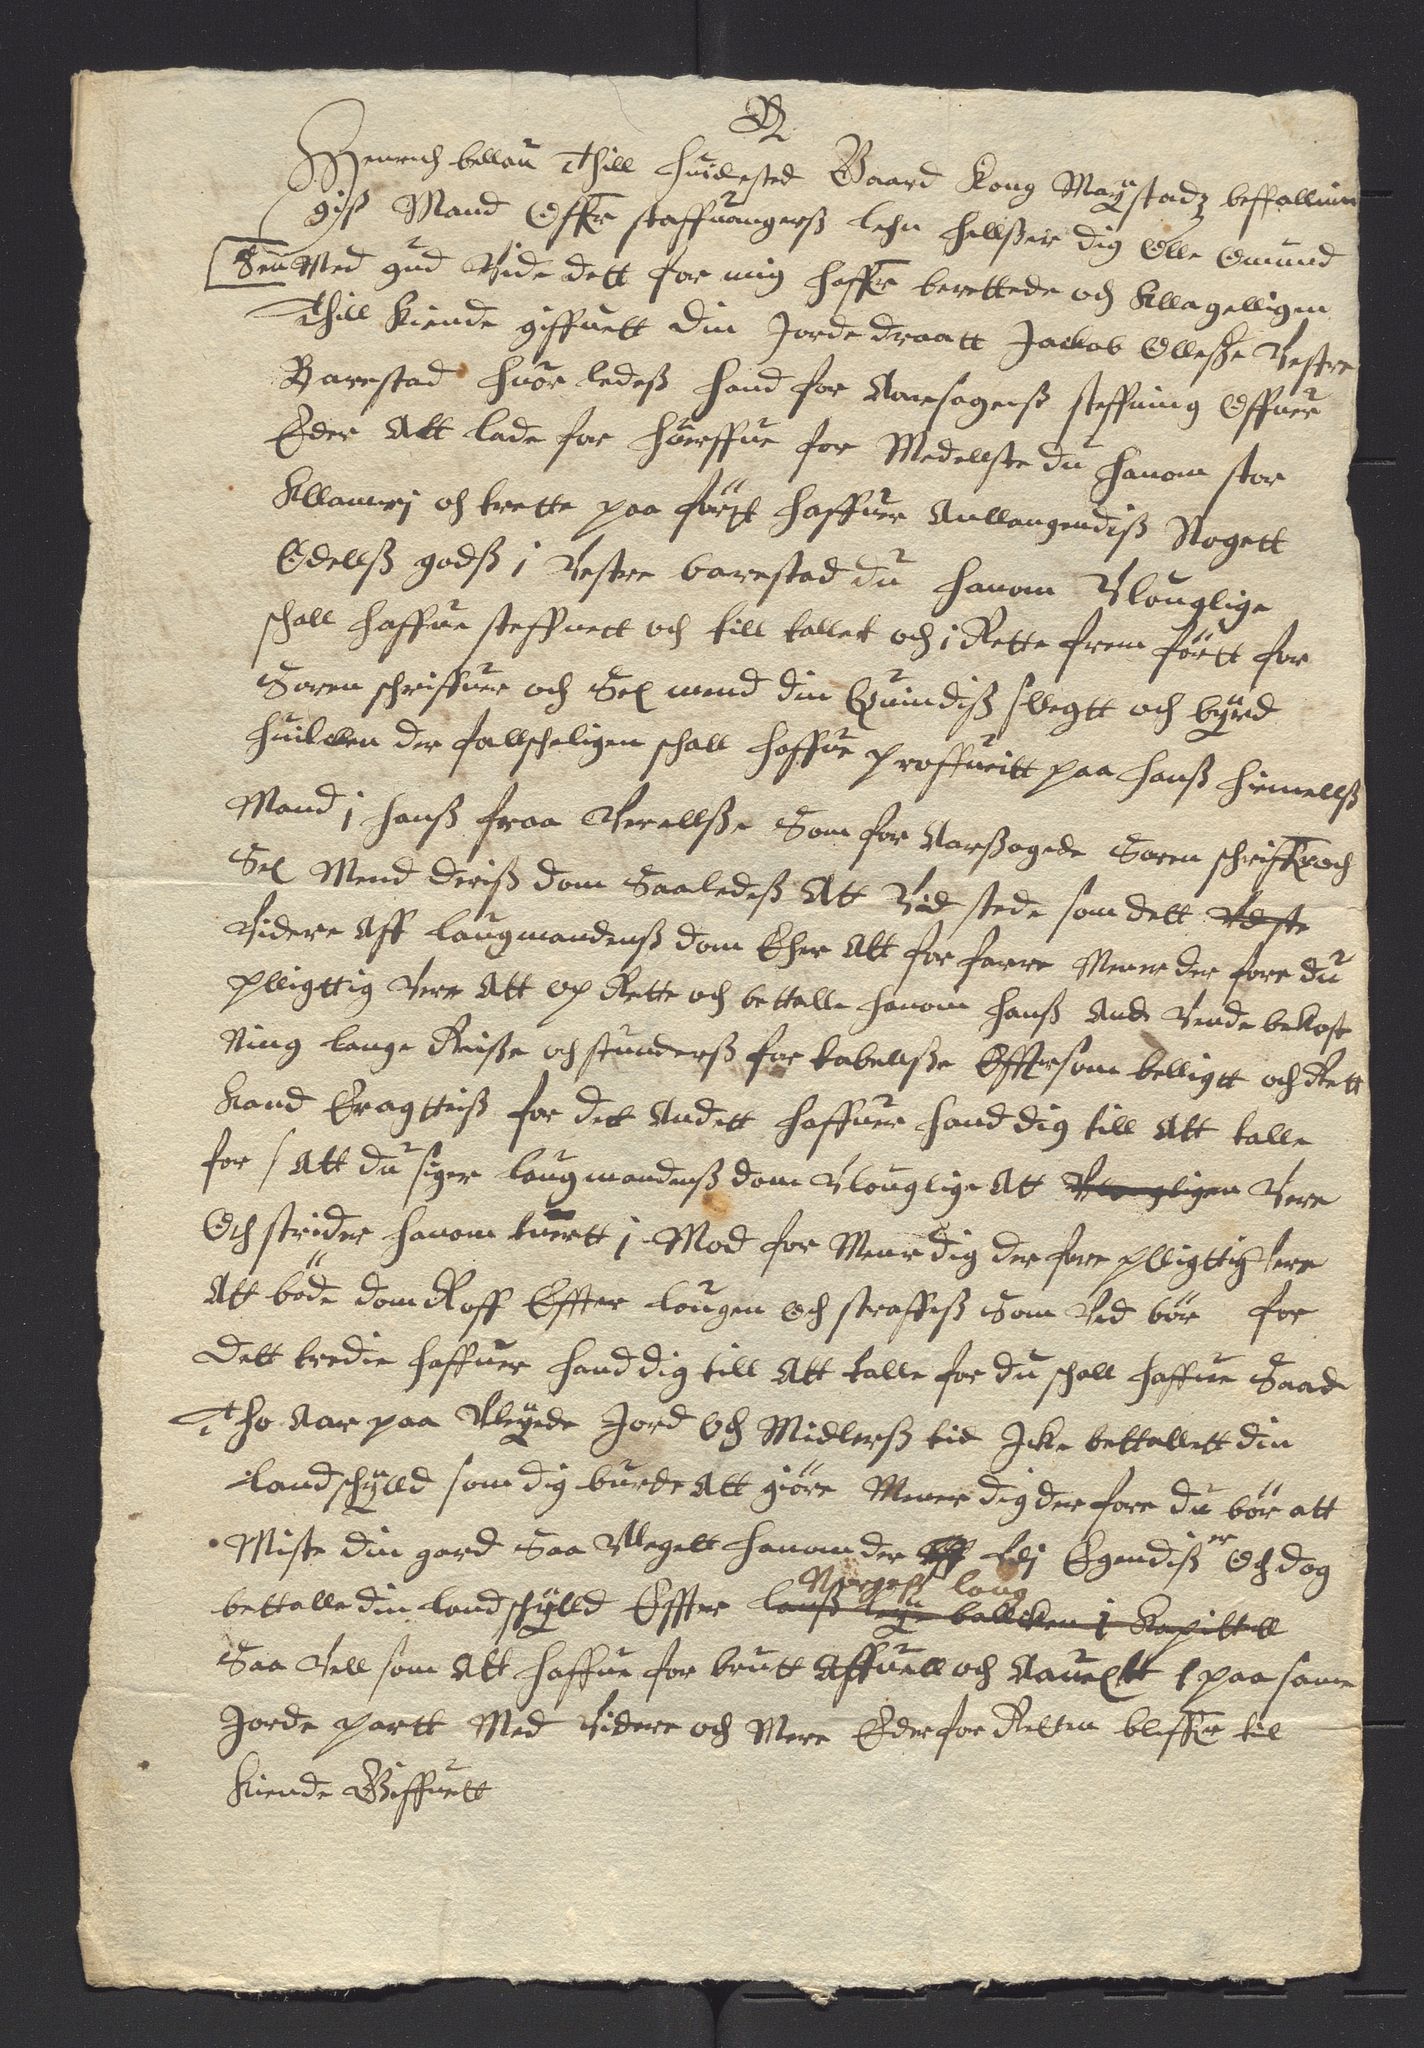 Henrich bellou Thill huidested Gaard Kong Maÿstadz beffallinn
giß Mand Offr staffuangerß lehn hellßer dig Olle Omund
Sen Med gud Vide dett for mig haffr berettede och Kllagelligen
Thill Kiende giffuett din Jorde draatt Jackob Olleße Vestre
Barestad huor ledeß hand for Aarsagenß steffning Offuer
Eder Att lade for huerffue for Medellste du hanom stor
Kllammerj och trette paa fört haffuer Anllangendiß Nogett
Odellß godß i Vestre barestad du hanom Vlouglige
schall haffue steffnett och till tallet och i Rette frem förtt for
Soren schriffuer och Sex mend din Quindiß sllegtt och bÿrd
huilcken der fallscheligen schall haffue proffueitt paa hanß hiemellß
Mand i hanß fraa Verellße Som for Aarßagede Soren schriffr och
Sex Mend deriß dom Saaledeß Att Vid stede som dett Veste
Videre Aff laugmandenß dom Eher Att for farre Mener der fore du
plligttig Vere Att op Rette och bettalle hanom hanß Ande Vende bekost
Ning lange Reiße och stunderß for tabellße Effter som belligtt och Rett
Kand Eragtteiß for det Andett haffuer hand dig till Att talle
for / Att du siger laugmandenß dom Vlouglige Att Vlougligen Vere
Och strider hanom tuertt i Mod for Mener dig der fore plligttig Vere
Att böde dom Roff Effter lougen Och straffiß Som Ved bör for
Dett tredie haffuer hand dig till Att talle for du schall haffue Saad
Tho Aar paa Vbÿgede Jord Och Midlerß tid Icke bettallett din
landschÿlld som dig burde Att giöre Mener dig der fore du bör att
Miste din gard Saa Megett hanom der Aff tilj Egendiß er Och dog
Norgeß loug
bettalle din landschÿlld Effter landß leÿe ballcken i Kapittell
Saa Vell som Att haffue for brutt Affuell och Aauextt paa same
Jorde partt Med Videre och Mere Eder for Retten bliffr til
Kiende Giffuett